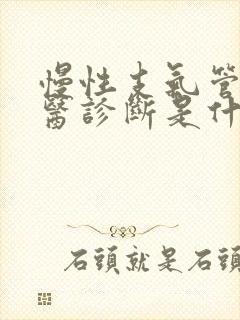 慢性支氣管
醫診斷是什
石頭就是石頭